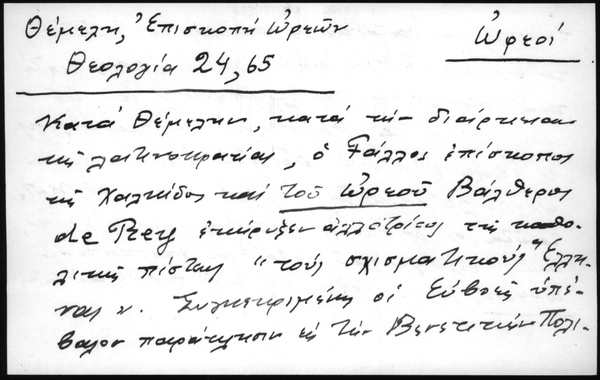 Θέμελη, Ἐπισκοπή Ὠρεῶν
Ὠρεοί
Θεολογία 24, 65
Κατά Θέμελην, κατά τήν διάρκειαν
τῆς λατινοκρατίας, ὁ Γάλλος ἐπίσκοπος
τῆς Χαλκίδος καί τοῦ Ὠρεοῦ Βάλθερος
de Rey ἐκήρυξεν ἀλλοτρίους τῆς καθο-
λικῆς πίστεως "τούς σχισματικούς" Ἕλλη-
νας. Συγκεκριμένη οἱ Εὐβοεῖς ὑπέ-
βαλον παράκλησιν εἰς τήν Βενετικήν Πολι-